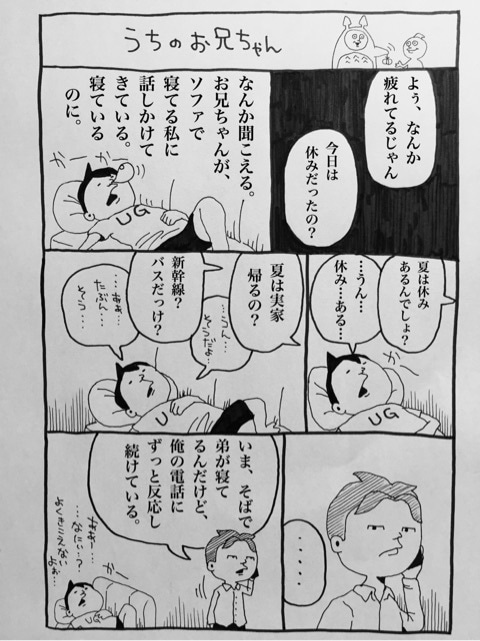 うちのお兄ちゃん
よぅ、なんか
疲れてるじゃん
今日は
休みだったの?
なんか聞こえる。
お兄ちゃんが、
ソファで
寝てる私に
話しかけて
きている。
寝ている
のに。
かーかー
UG
夏は休み
あるんでしょ?
…うん…
休み…ある…
かー
UG
夏は実家
帰るの?
…うん…
そうだよ…
新幹線?
バスだっけ?
…ああ…
たぶん…
そう…
U
……
いま、そばで
弟が寝て
るんだけど、
俺の電話に
ずっと反応し
続けている。
ああー…
…なにぃ…?
よくきこえない
よぉ…
かー
UG